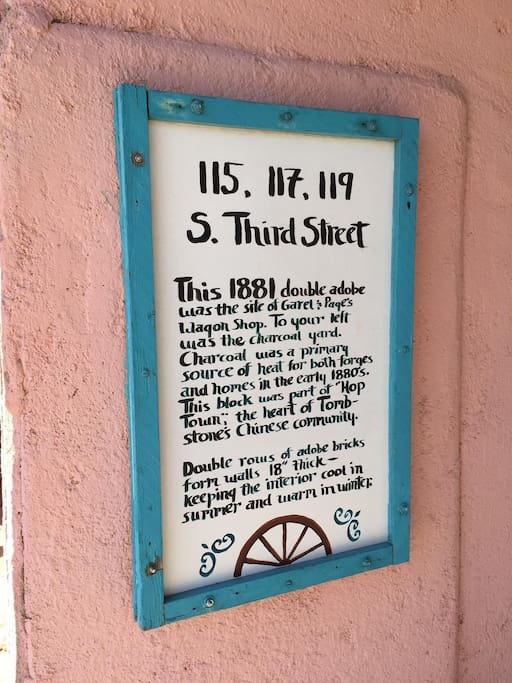 115, 117, 119
S. Third Street
This 1881 double adobe
was the site of Garel & Page's
Wagon Shop. To your left
was the charcoal yard.
Charcoal was a primary
source of heat for both forges
and homes in the early 1880's.
This block was part of "Hop
Town", the heart of Tomb-
stone's Chinese community.
Double rows of adobe bricks
form walls 18" thick—
keeping the interior cool in
summer and warm in winter.